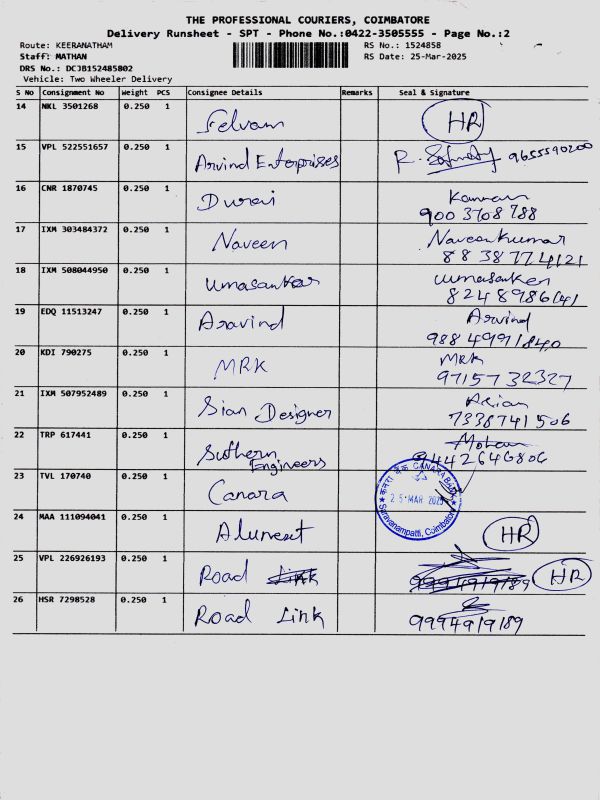 THE PROFESSIONAL COURIERS, COIMBATORE
Delivery Runsheet - SPT - Phone No.:0422-3505555 - Page No.:2
Route: KEERANATHAM
RS No.: 1524858
Staff: MATHAN
RS Date: 25-Mar-2025
DRS No.: DCJB152485802
Vehicle: Two Wheeler Delivery
S No Consignment No Weight PCS Consignee Details Remarks Seal & Signature
14 NKL 3501268 0.250 1 Selvam HR
15 VPL 522551657 0.250 1 Arvind Enterprises R. 9655590200
16 CNR 1870745 0.250 1 Durai Kannan
900 3708 788
17 IXM 303484372 0.250 1 Naveen Naveenkumar
88 38774121
18 IXM 508044950 0.250 1 Umasankar Umasankar
8248986141
19 EDQ 11513247 0.250 1 Aravind Arvind
988 4991840
20 KDI 790275 0.250 1 MRK MRK
97157 32327
21 IXM 507952489 0.250 1 Sian Designer
7338741506
22 TRP 617441 0.250 1 Suthern Engineers Mohan
9442646806
23 TVL 170740 0.250 1 Canara
केनरा बैंक CANARA BANK
25 MAR 2025
Saravanampatti, Coimbatore
24 MAA 111094041 0.250 1 HR
25 VPL 226926193 0.250 1 Road Link 9994919189 HR
26 HSR 7298528 0.250 1 Road Link
9994919189